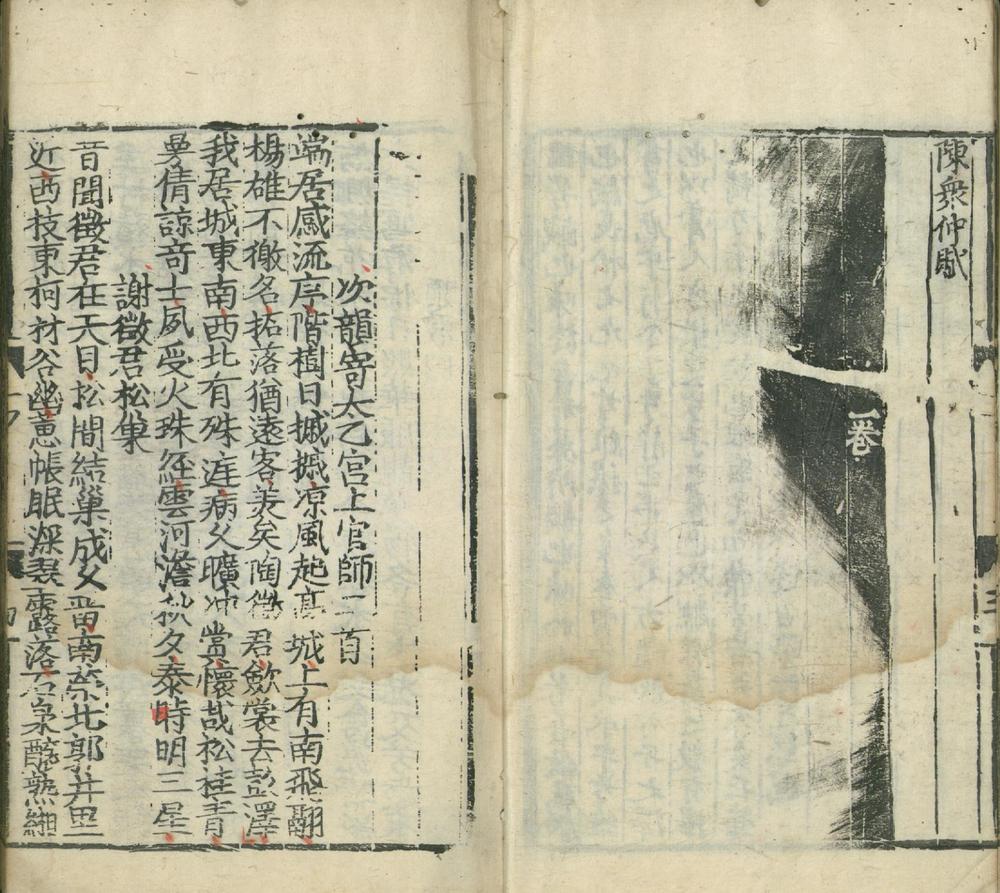 陳衆仲賦
一卷
三
次韻寄太乙宮上官師二首
端居感流序階樹日摵摵凉風起高城上有南飛翮
楊雄不徼名拓落猶遠客羨矣陶徵君歛裳去彭澤
我居城東南西北有殊庭病夫曠冲當懷哉松桂青
曼倩諒奇士夙受火珠經雲河澹秋夕泰時明三星
謝徵君松巢
昔聞徵君在天日松間結巢成久畱南榮北郭井里
近西枝東柯村谷幽蕙帳眠深露落石泉醲熟緗
四